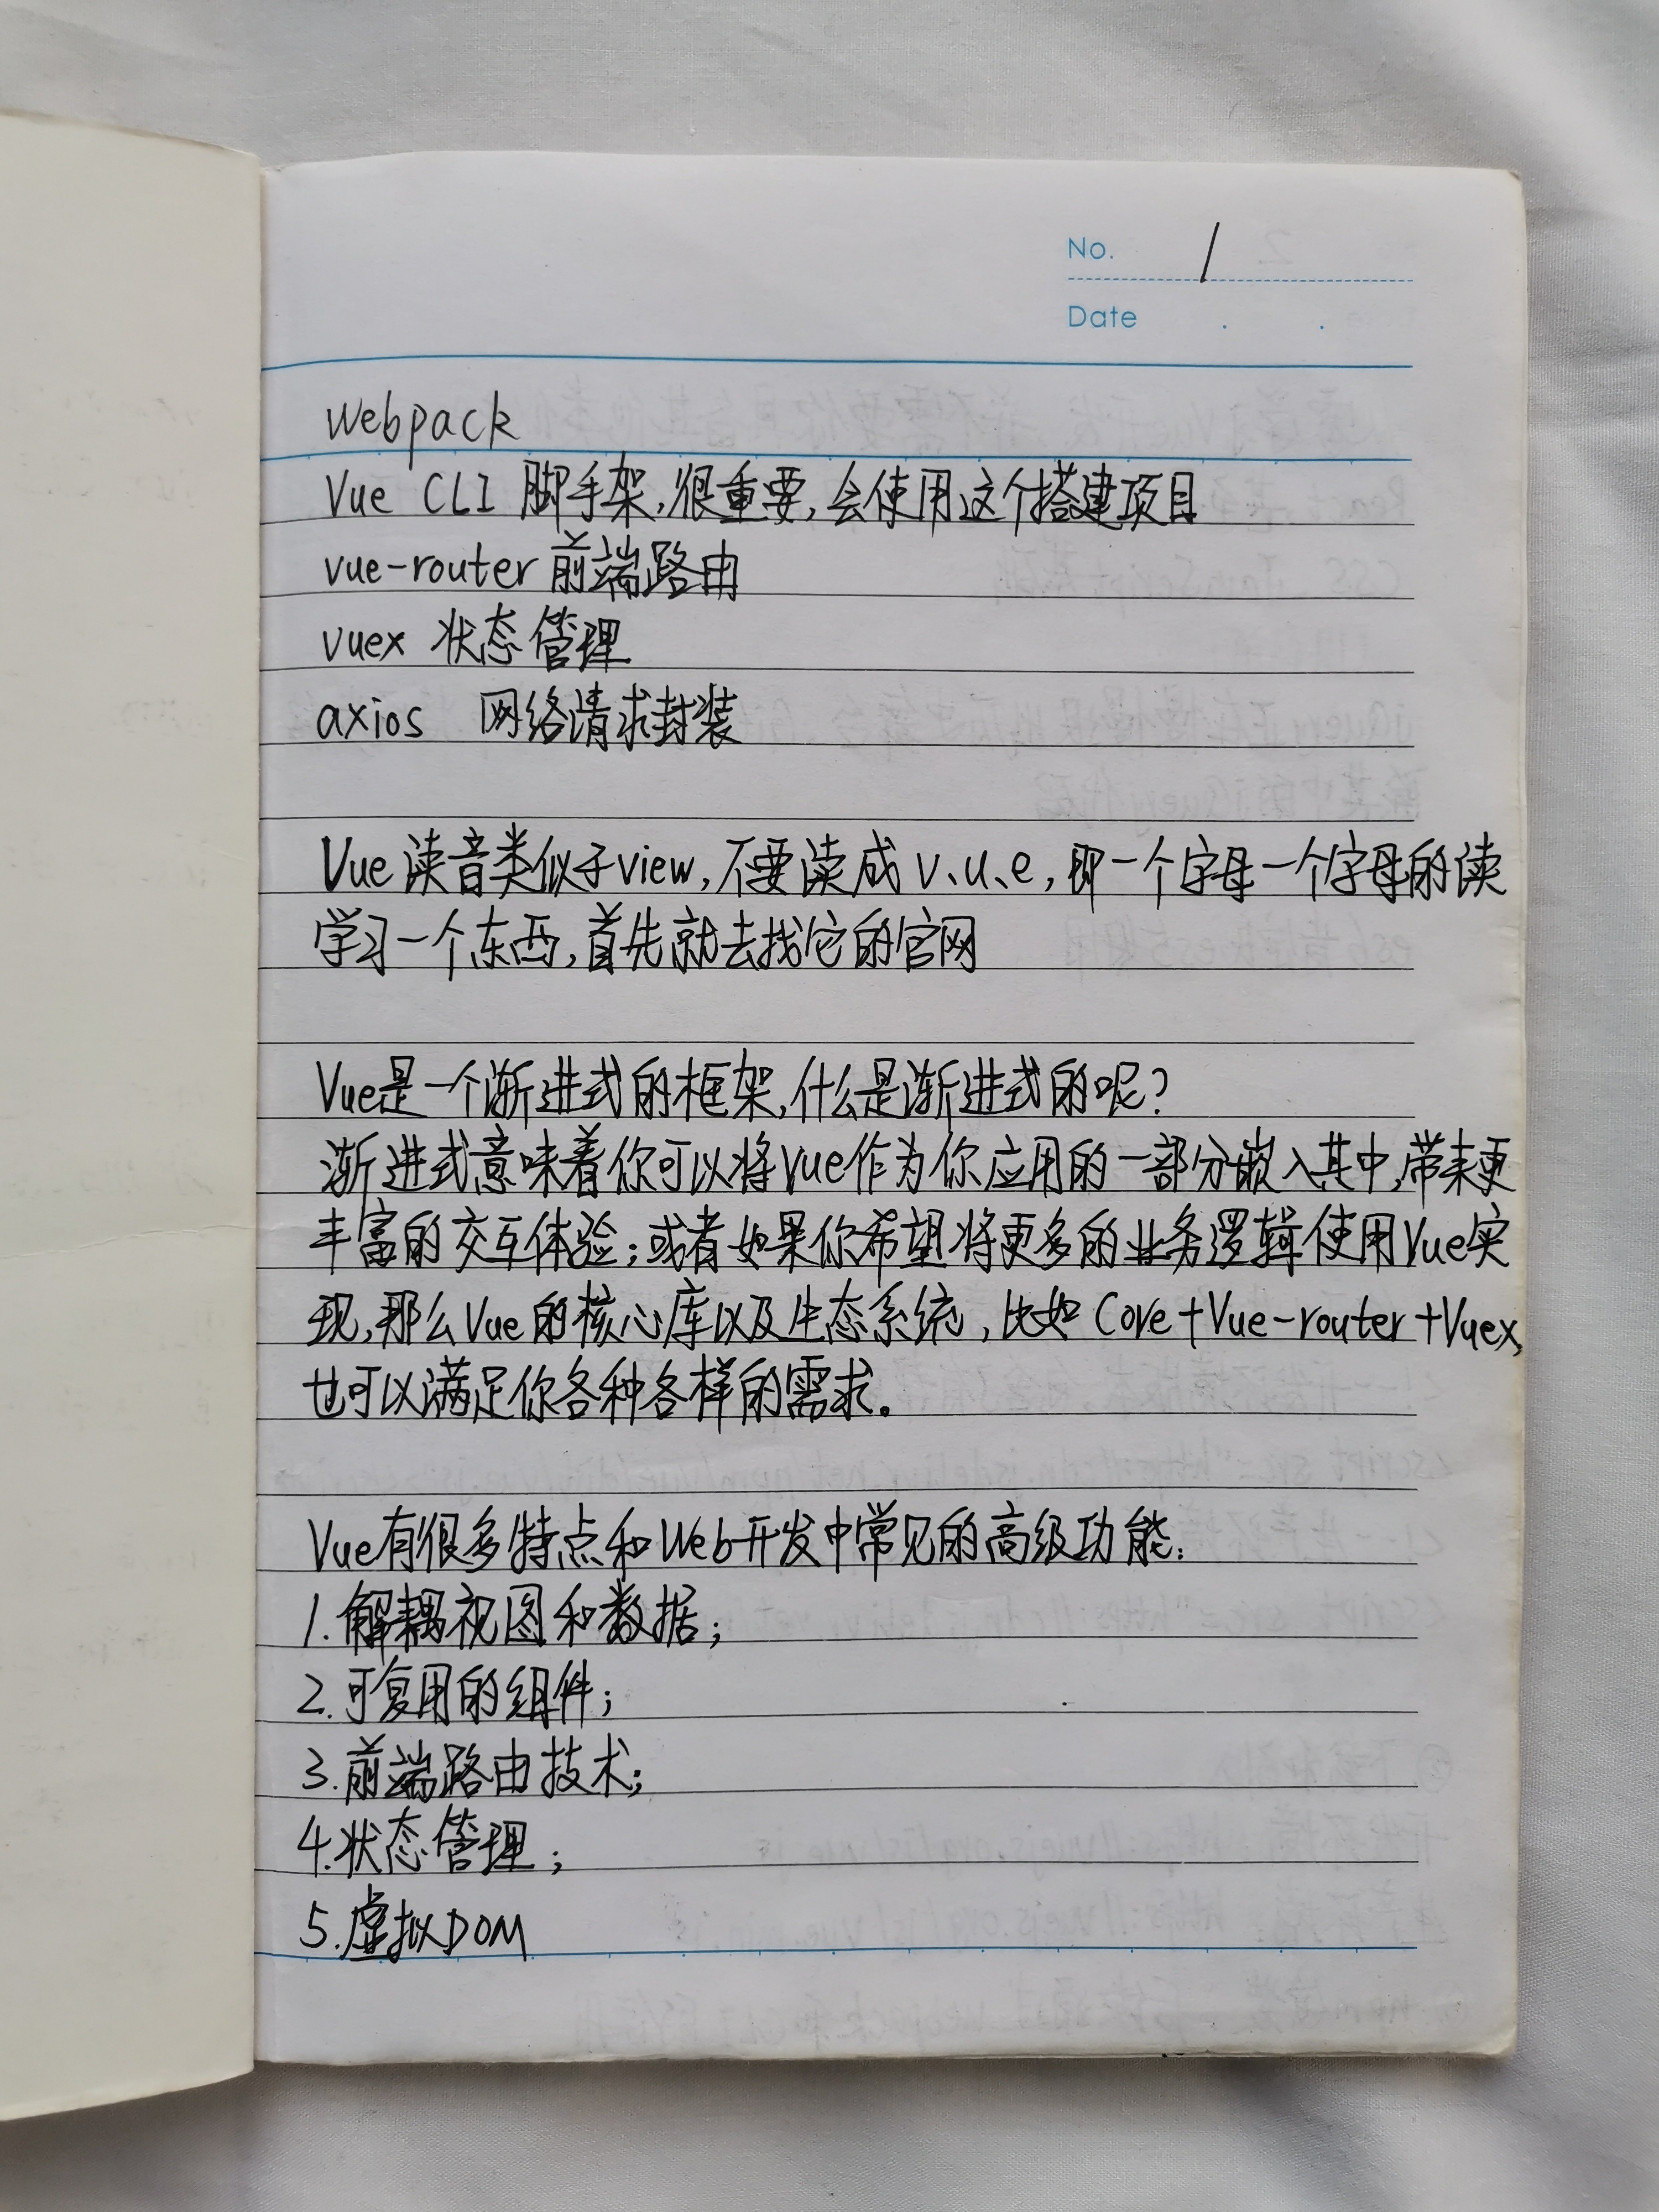 No. 1
Date . .
Webpack
Vue CLI 脚手架,很重要,会使用这个搭建项目
vue-router 前端路由
vuex 状态管理
axios 网络请求封装
Vue 读音类似于view,不要读成v、u、e,即一个字母一个字母的读
学习一个东西,首先就去找它的官网
Vue是一个渐进式的框架,什么是渐进式的呢?
渐进式意味着你可以将Vue作为你应用的一部分嵌入其中,带来更
丰富的交互体验;或者如果你希望将更多的业务逻辑使用Vue实
现,那么Vue的核心库以及生态系统,比如Core+Vue-router+Vuex,
也可以满足你各种各样的需求。
Vue有很多特点和Web开发中常见的高级功能:
1.解耦视图和数据;
2.可复用的组件;
3.前端路由技术;
4.状态管理;
5.虚拟DOM